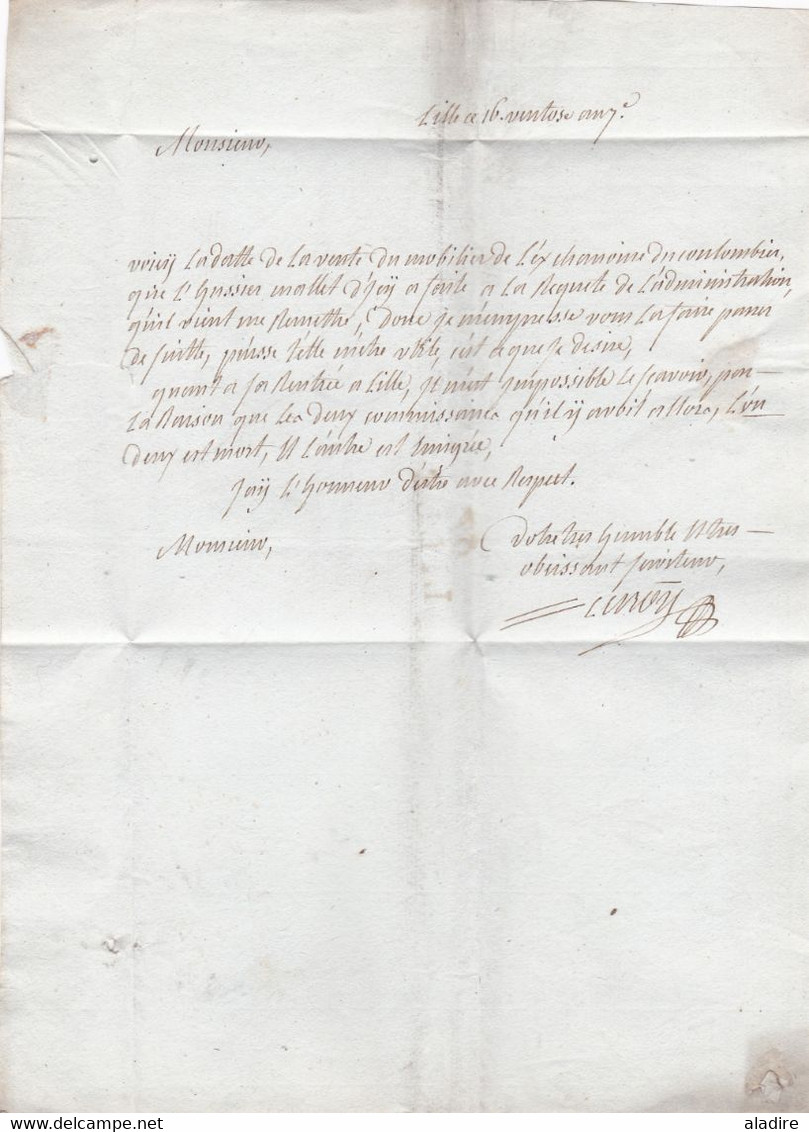 Lille ce 16 ventose an 7e
Monsieur,
voicij la datte de la vente du mobilier de l'éx chanoine du coulombier,
que l'Hussier mallet d'Joij a faite a la Requete de l'administration,
qu'il vient me Remettre, donc je m'empresse vous la faire passer
de suitte, puisse t'elle m'etre utile, est ce que je desire,
quant a sa Rentrée a Lille, il m'est jmpossible le scavoir, par
la Raison que les deux commissaires qu'il ij avoit allors, l'un
deux est mort, et l'autre est Emigrée,
jaij l'Honneur d'être avec Respect.
Monsieur,
Votre tres humble et tres
obeissant serviteur,
Leroij
LILLE
www.delcampe.net
aladire